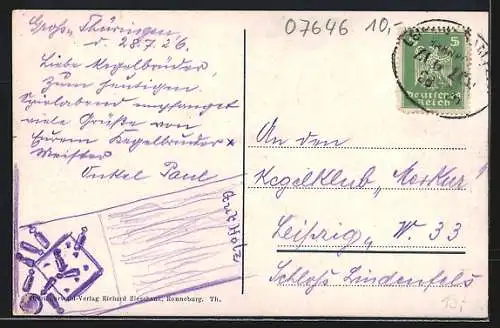 07646 10,-
Groß-Thüringen
d. 28.7.26.
Liebe Kegelbrüder,
zum heutigen
Spielabend empfanget
viele Grüße von
Eurem Kegelbruder x
Meister
Onkel Paul
Gut Holz
Verlag Richard Zierschaus, Ronneburg. Th.
5
Deutsches
Reich
An den
Kegelklub „Merkur“
Leipzig, W. 33
Schloß Lindenfels
10,-